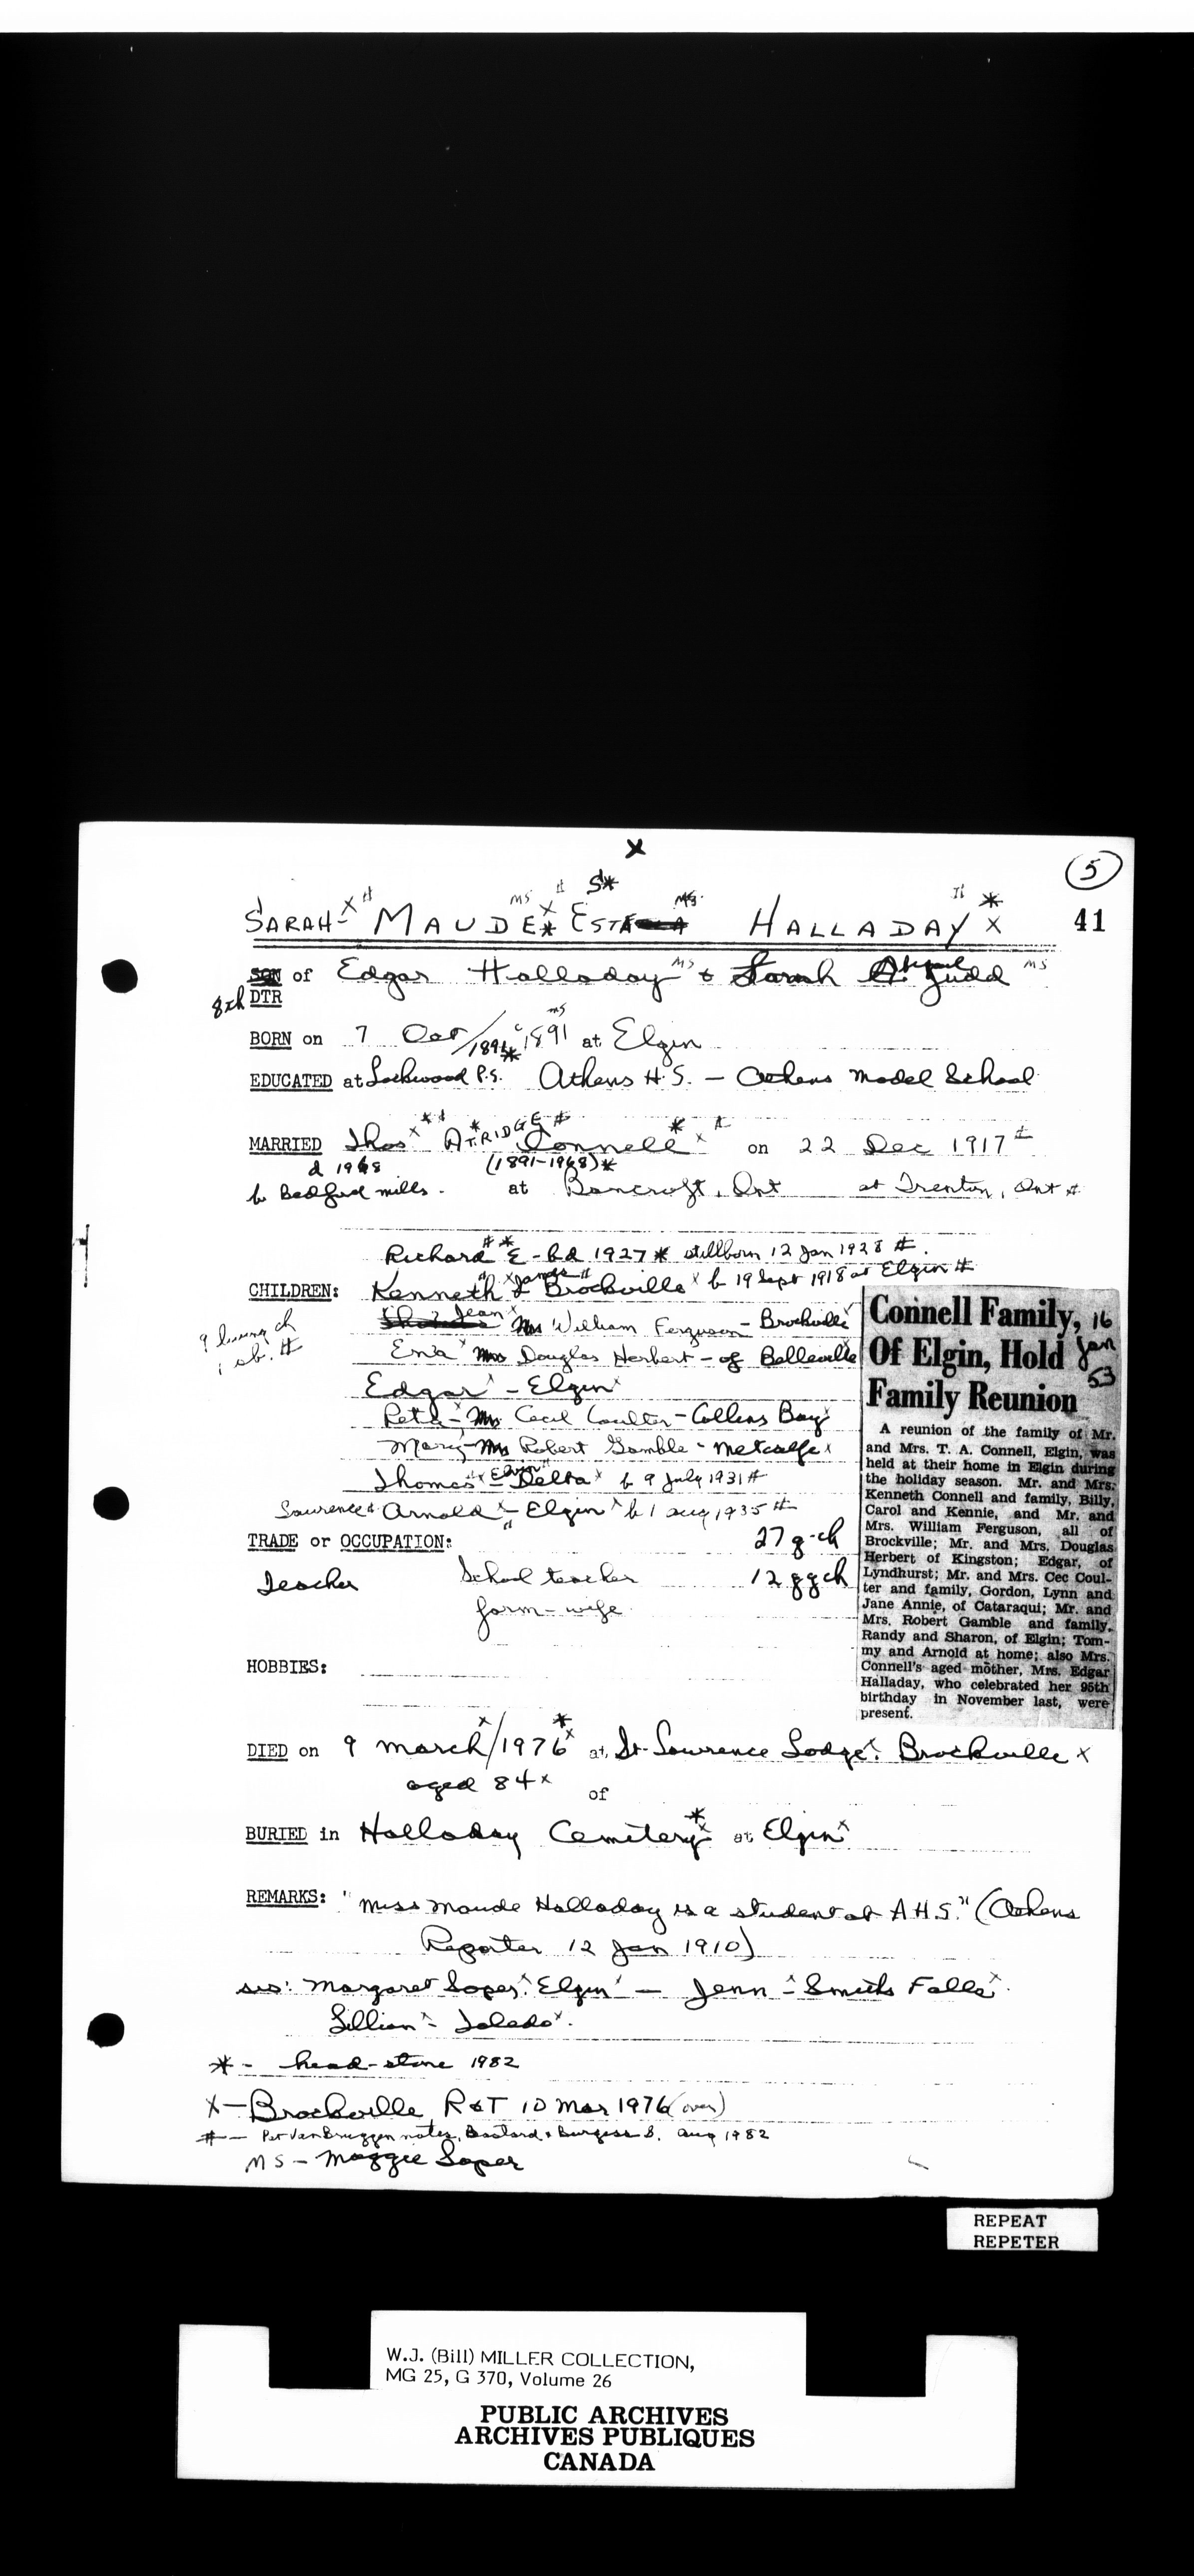 x
5
S*
MS # MS # *
SARAH- x # MAUDE x * ESTA HALLADAY x 41
SON of Edgar Halladay MS & Sarah Abigail Judd MS
8th DTR
BORN on 7 Oct / 1891* c 1891 MS at Elgin
EDUCATED at Lockwood P.S. Athens H.S. - Athens Model School
MARRIED Thos x * # ATRIDGE * # Connell * x # on 22 Dec 1917 #
d 1968 (1891-1968)*
b Bedford Mills. at Bancroft, Ont at Trenton, Ont #
Richard # * E - bd 1927 * stillborn 12 Jan 1928 #.
CHILDREN: Kenneth James Brockville x b 19 Sept 1918 at Elgin #
9 living ch
1 sb. #
Jean x Mrs William Ferguson - Brockville x
Ena x Mrs Douglas Herbert - of Belleville x
Edgar x - Elgin x
Reta x - Mrs Cecil Coulter - Collins Bay x
Mary - Mrs Robert Gamble - Metcalfe x
Thomas x - Elgin Delta x b 9 July 1931 #
Lawrence # Arnold x - Elgin x b 1 Aug 1935 #
TRADE or OCCUPATION: 27 g-ch
Teacher School teacher 12 ggch
farm-wife
HOBBIES:
Connell Family, 16
Of Elgin, Hold Jan
Family Reunion 53
A reunion of the family of Mr.
and Mrs. T. A. Connell, Elgin, was
held at their home in Elgin during
the holiday season. Mr. and Mrs.
Kenneth Connell and family, Billy,
Carol and Kennie, and Mr. and
Mrs. William Ferguson, all of
Brockville; Mr. and Mrs. Douglas
Herbert of Kingston; Edgar, of
Lyndhurst; Mr. and Mrs. Cec Coul-
ter and family, Gordon, Lynn and
Jane Annie, of Cataraqui; Mr. and
Mrs. Robert Gamble and family,
Randy and Sharon, of Elgin; Tom-
my and Arnold at home; also Mrs.
Connell's aged mother, Mrs. Edgar
Halladay, who celebrated her 95th
birthday in November last, were
present.
DIED on 9 March x / 1976 * x at St-Lawrence Lodge x. Brockville x
aged 84 x of
BURIED in Halladay Cemitery * x at Elgin x
REMARKS: "Miss Maude Halladay is a student at A.H.S." (Athens
Reporter 12 Jan 1910)
sis: Margaret Soper x. Elgin x - Jenn x - Smiths Falls x.
Lillian x - Toledo x.
* - head-stone 1982
x - Brockville R&T 10 Mar 1976 (over)
# - Pat VanBruggen notes, Bastard & Burgess S. Aug 1982
MS - Maggie Soper
REPEAT
REPETER
W.J. (Bill) MILLER COLLECTION,
MG 25, G 370, Volume 26
PUBLIC ARCHIVES
ARCHIVES PUBLIQUES
CANADA